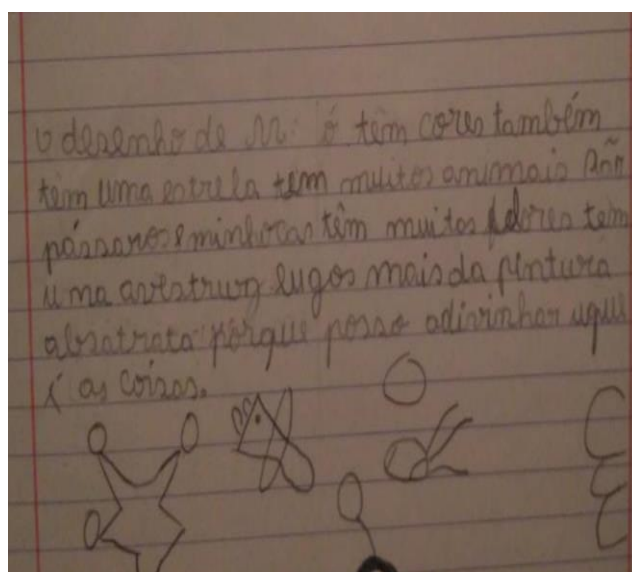 o desenho de M: ó tem cores também
tem uma estrela tem muitos animais são
pássaros e minhocas têm muitas flores tem
uma avestruz eu gos mais da pintura
absatrata porque posso adivinhar uque
é as coisas.